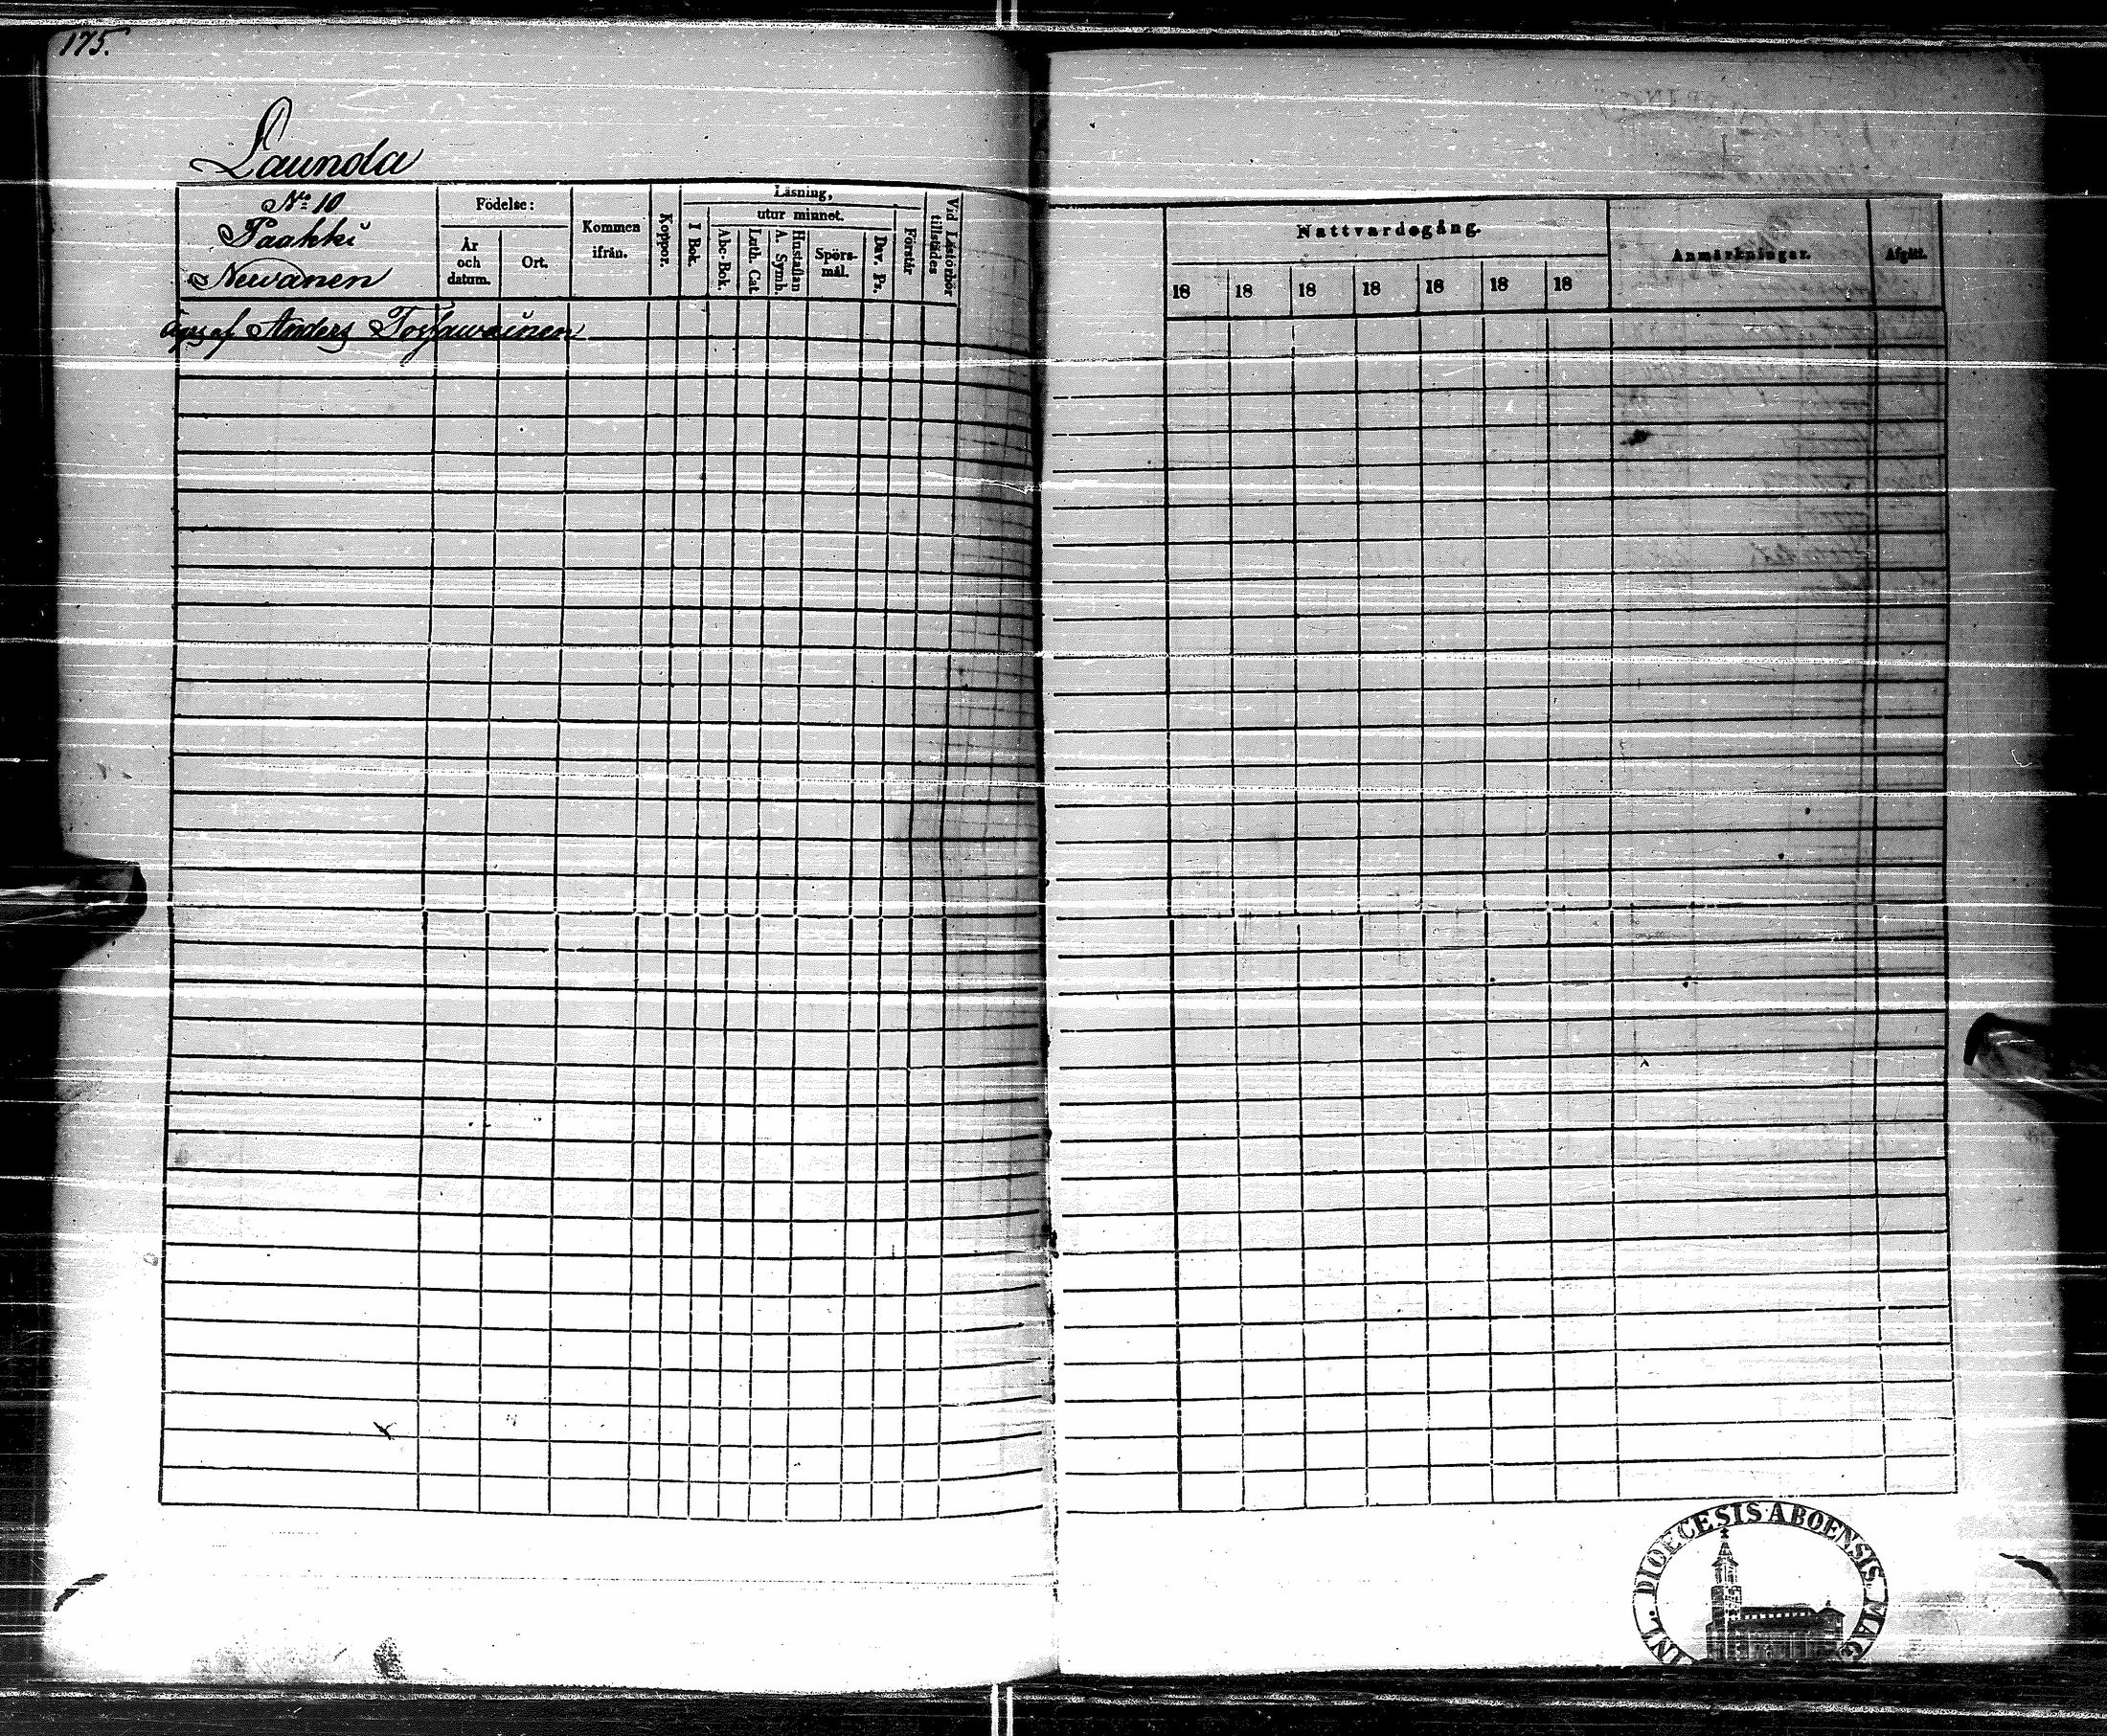 175.
Launola
No 10
Paakki
Newanen
Födelse:
År och datum.
Ort.
Kommen ifrån.
Koppor.
Läsning,
I Bok.
utur minnet.
Abc-Bok.
Luth. Cat.
Hustaflan
A. Symb.
Spörs-
mål.
Dav. Ps.
Förstår
Vid Läsförhör
tillstädes
Äges af Anders
Nattvardsgång.
18 18 18 18 18 18 18
Anmärkningar.
Afgått.
INL. DIOECESIS ABOENSIS MAG